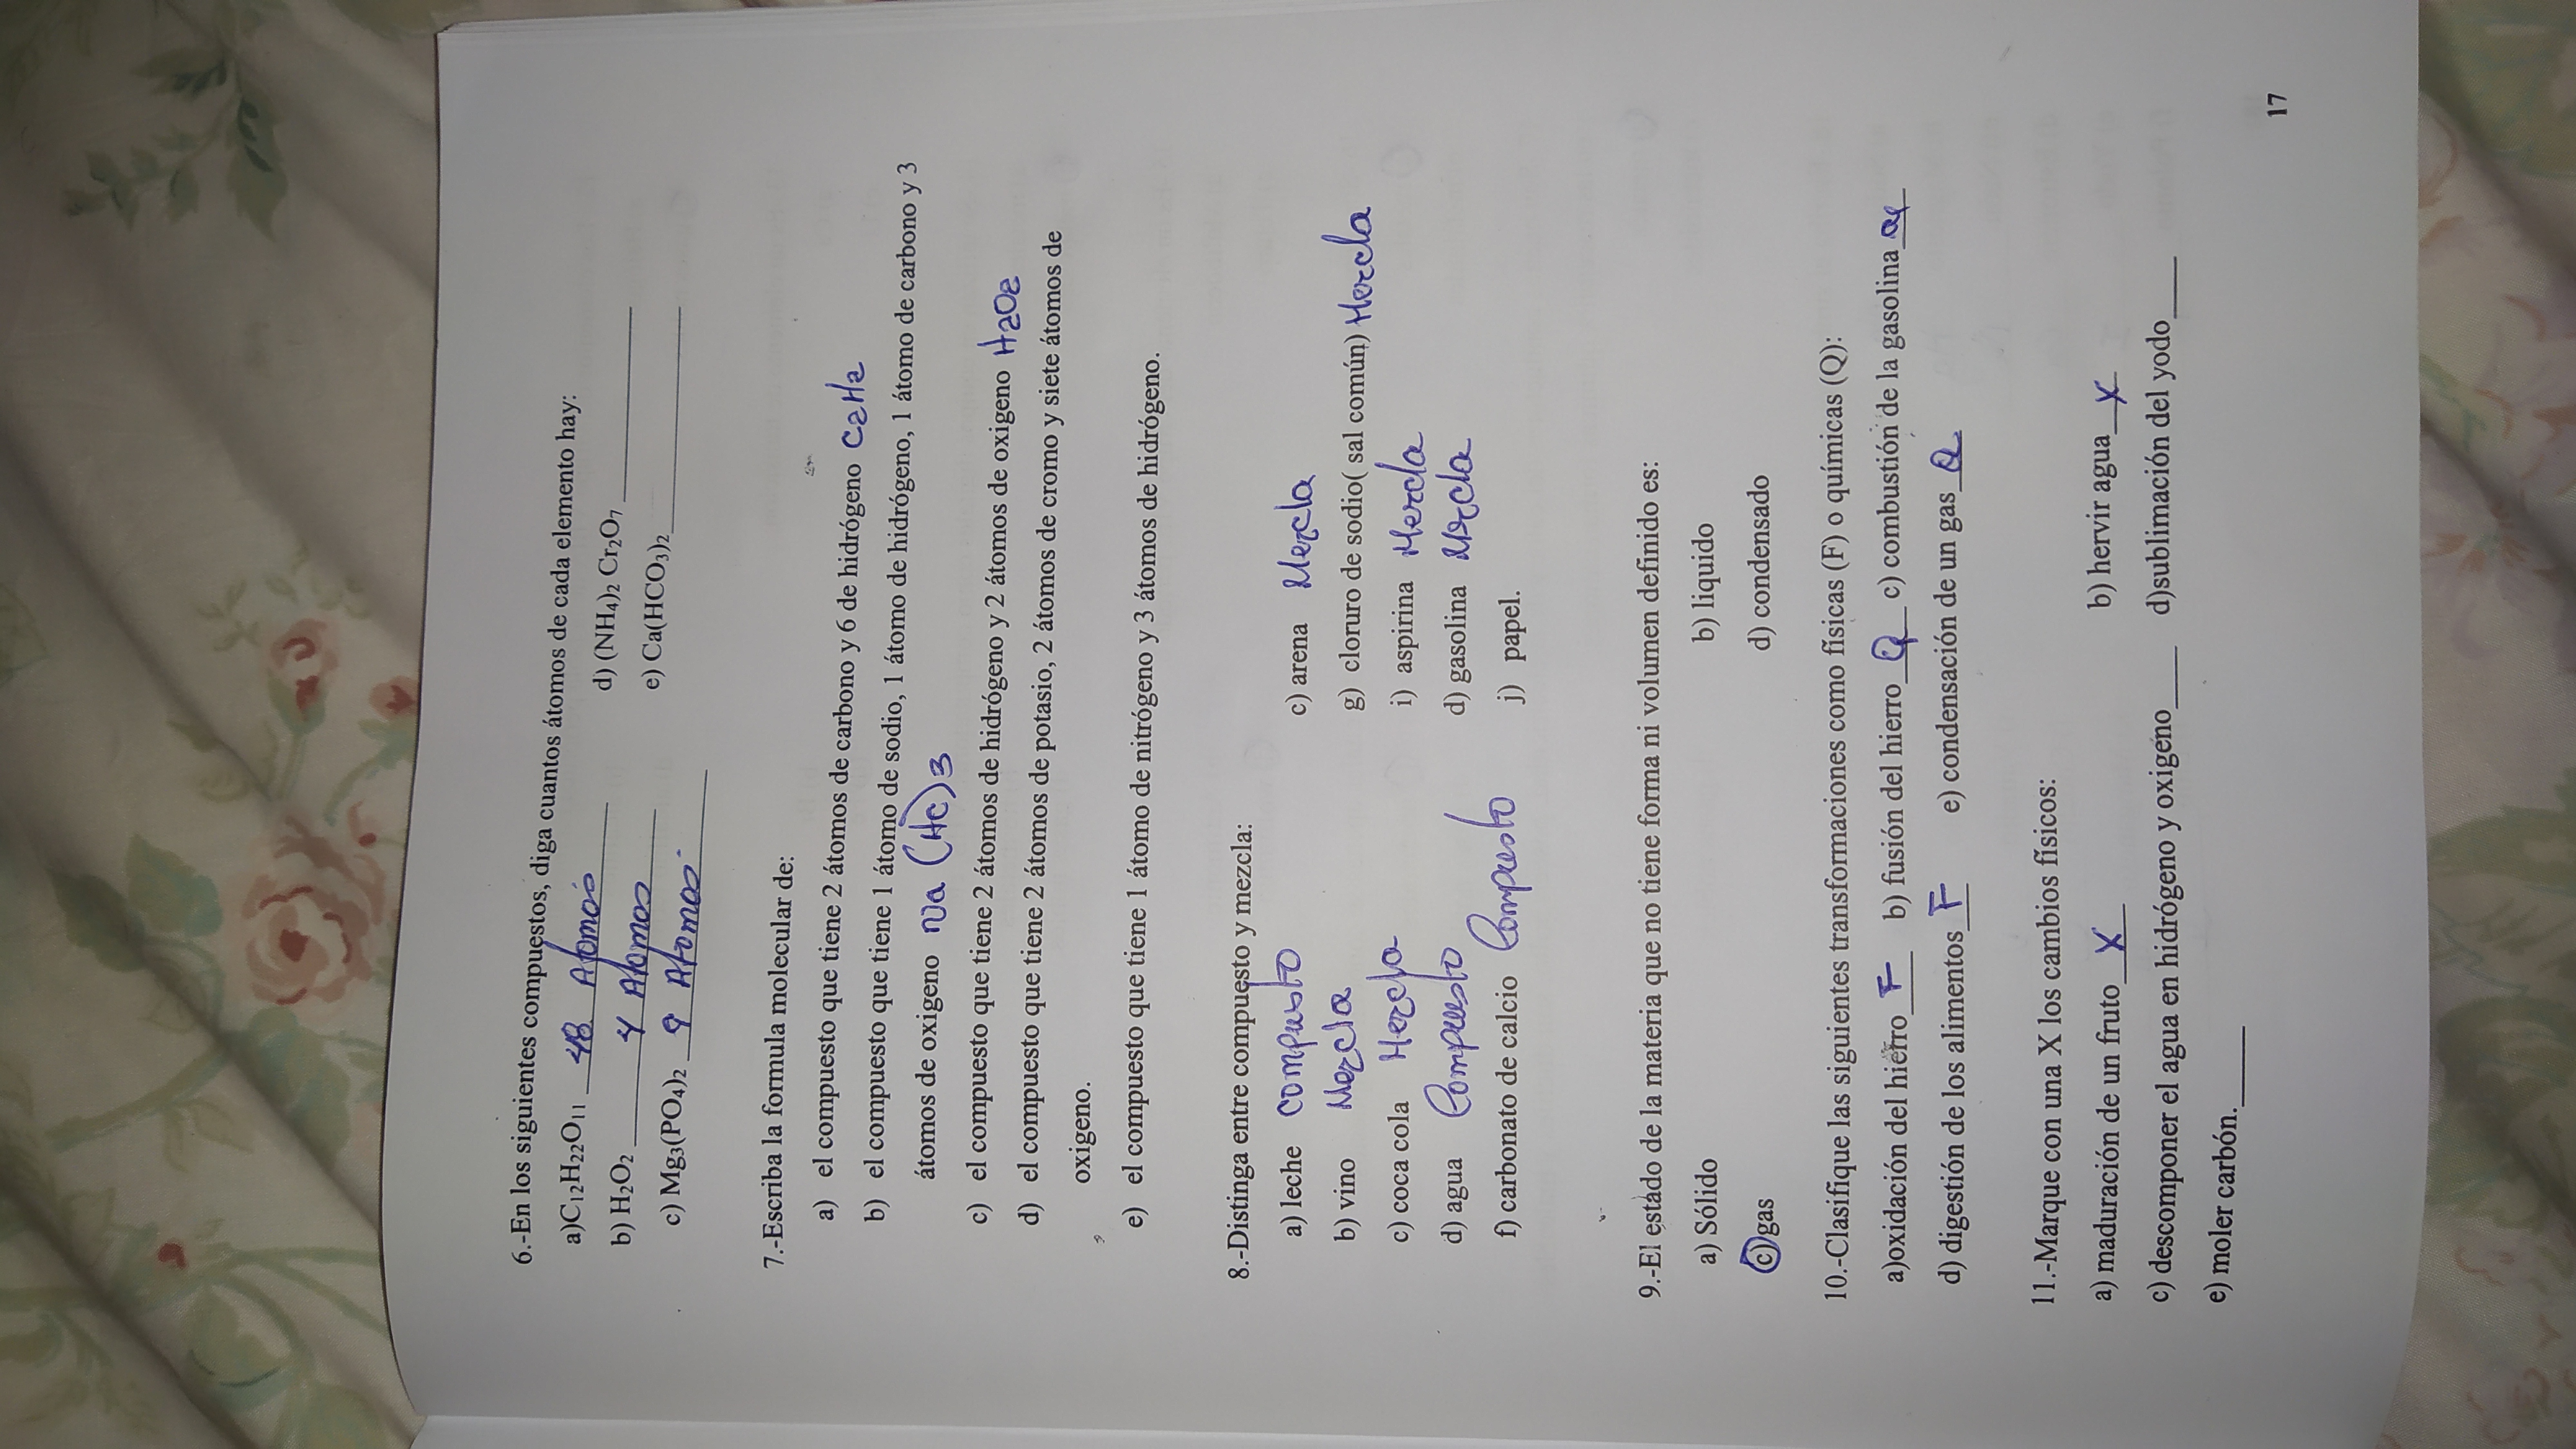 6.-En los siguientes compuestos, diga cuantos átomos de cada elemento hay:
a)C₁₂H₂₂O₁₁ 48 Atomos
d) (NH₄)₂ Cr₂O₇
b) H₂O₂ 4 Atomos
e) Ca(HCO₃)₂
c) Mg₃(PO₄)₂ 9 Atomos
7.-Escriba la formula molecular de:
a) el compuesto que tiene 2 átomos de carbono y 6 de hidrógeno C2H2
b) el compuesto que tiene 1 átomo de sodio, 1 átomo de hidrógeno, 1 átomo de carbono y 3
átomos de oxigeno Na (HC)3
c) el compuesto que tiene 2 átomos de hidrógeno y 2 átomos de oxigeno H2O2
d) el compuesto que tiene 2 átomos de potasio, 2 átomos de cromo y siete átomos de
oxigeno.
e) el compuesto que tiene 1 átomo de nitrógeno y 3 átomos de hidrógeno.
8.-Distinga entre compuesto y mezcla:
a) leche compusto
c) arena Mezcla
b) vino Mezcla
g) cloruro de sodio( sal común) Mezcla
c) coca cola Mezcla
i) aspirina Mezcla
d) agua Compuesto
d) gasolina Mezcla
f) carbonato de calcio Compuesto
j) papel.
9.-El estado de la materia que no tiene forma ni volumen definido es:
a) Sólido
b) liquido
c) gas
d) condensado
10.-Clasifique las siguientes transformaciones como físicas (F) o químicas (Q):
a)oxidación del hierro F b) fusión del hierro Q c) combustión de la gasolina Q
d) digestión de los alimentos F e) condensación de un gas Q
11.-Marque con una X los cambios físicos:
a) maduración de un fruto X
b) hervir agua X
c) descomponer el agua en hidrógeno y oxigeno
d)sublimación del yodo
e) moler carbón.
17